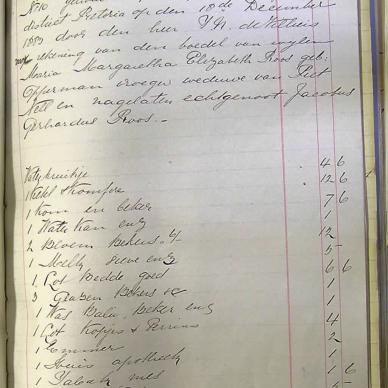 No 10
district Pretoria op den 18de December
1883 door den heer J. N. de Villiers
rekening van den boedel van wylen
Maria Margaretha Elizabeth Roos geb:
Opperman vroeger weduwe van Piet
Nell en nagelaten echtgenoot Jacobus
Gerhardus Roos.-
4 6
1 Ketel & Komfoor 12 6
1 Kom en beker 7 6
1 Water Kan enz 1
2 Bloem Bekers 12
1 Melk zeeve enz 5
1 Lot Bedde goed 6 6
3 Glazen Bekers &c 1
1 Was Balie, Beker enz 1
1 Lot Kopjes & 4
1 Emmer 2
1 apotheek 1
1 Tabak mes 1 6